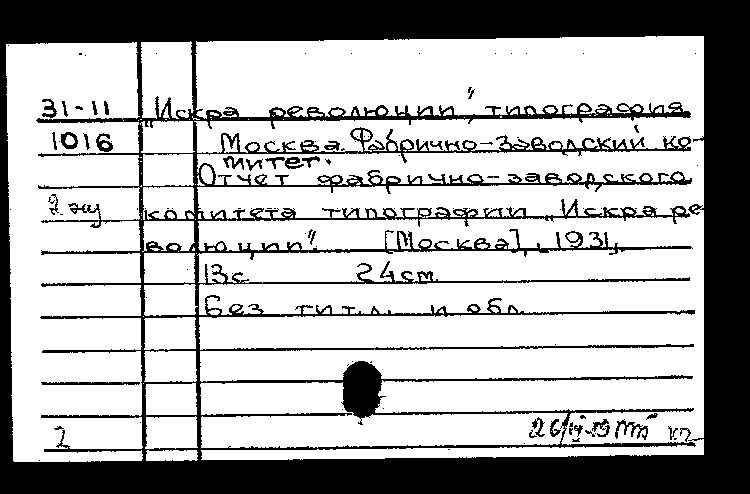 31-11 „Искра революции", типография
1016 Москва. Фабрично-заводский ко-
митет.
Отчет фабрично-заводского
2 экз комитета типографии „Искра ре-
волюции". [Москва], 1931,
13с 24см.
Без тит.л. и обл.
2